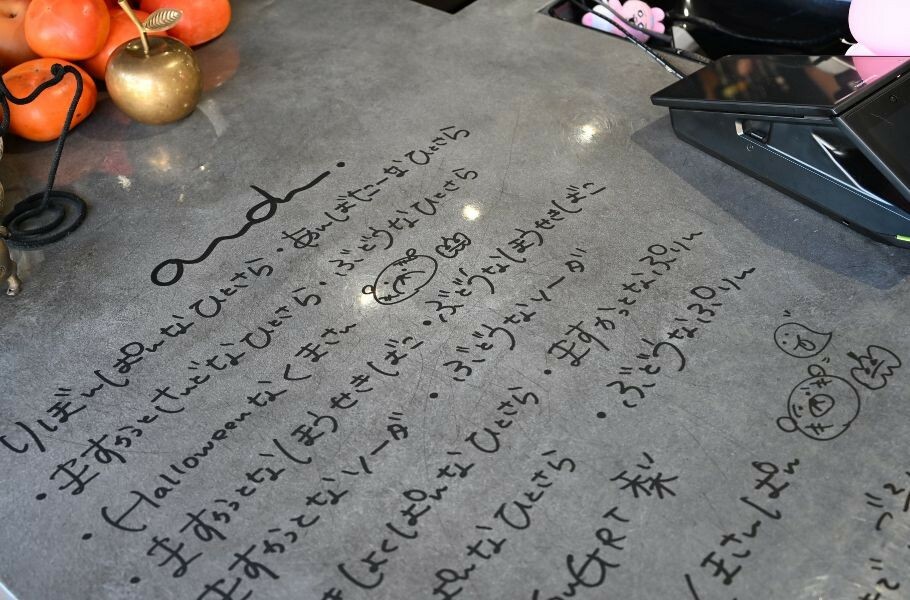 and.
りぼんぱんなひとさら・あんばたーなひとさら
・ますかっとさんどなひとさら・ぶどうなひとさら
・Halloweenなくまさん
・ますかっとなほうせきばこ・ぶどうなほうせきばこ
ますかっとなソーダ・ぶどうなソーダ
ぱんなひとさら・ますかっとなぷりん
なひとさら・ぶどうなぷりん
梨
くまさんぱん